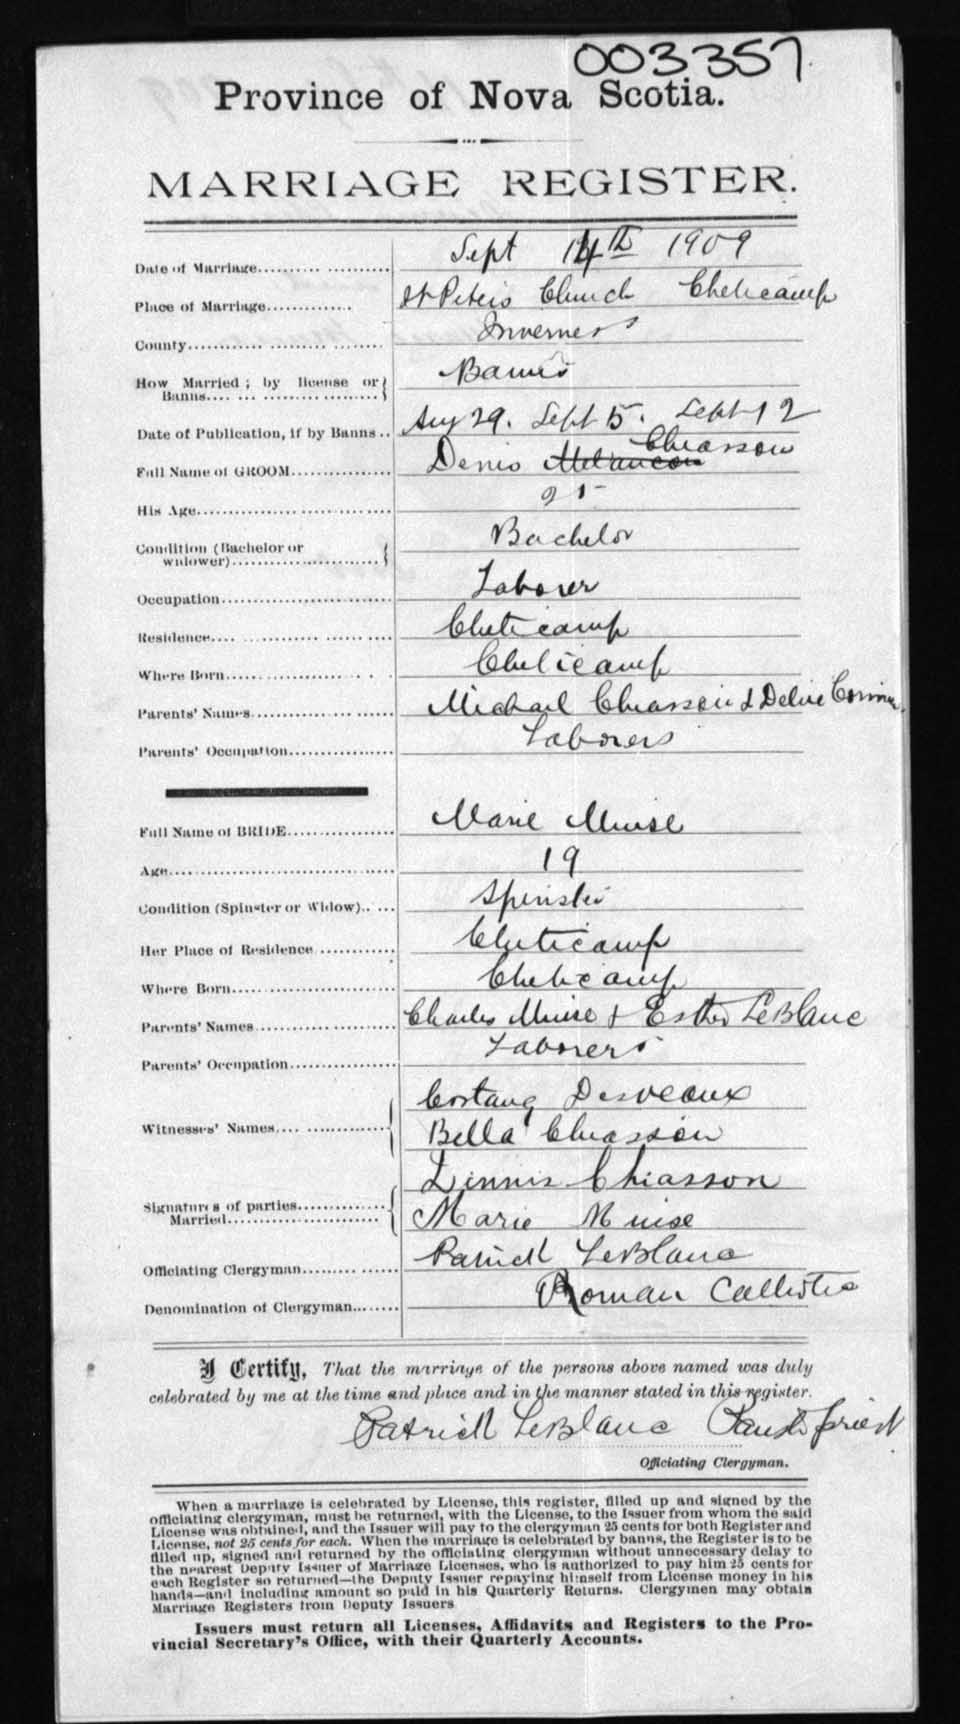 003357
Province of Nova Scotia.
MARRIAGE REGISTER.
Date of Marriage Sept 14th 1909
Place of Marriage St Peter's Church Cheticamp
County Inverness
How Married; by license or Banns Banns
Date of Publication, if by Banns Aug 29. Sept 5. Sept 12
Full Name of GROOM Denis Melancon Chiasson
His Age
Condition (Bachelor or widower) Bachelor
Occupation Laborer
Residence Cheticamp
Where Born Cheticamp
Parents' Names Michael Chiasson & Deline
Parents' Occupation Laborers
Full Name of BRIDE Marie Muise
Age 19
Condition (Spinster or Widow) Spinster
Her Place of Residence Cheticamp
Where Born Cheticamp
Parents' Names Charles Muise & Esther LeBlanc
Parents' Occupation Laborers
Witnesses' Names Desveaux
Bella Chiasson
Signatures of parties Married Dennis Chiasson
Marie Muise
Officiating Clergyman Patrick LeBlanc
Denomination of Clergyman Roman Catholic
I Certify, That the marriage of the persons above named was duly
celebrated by me at the time and place and in the manner stated in this register.
Patrick LeBlanc Parish priest
Officiating Clergyman.
When a marriage is celebrated by License, this register, filled up and signed by the
officiating clergyman, must be returned, with the License, to the Issuer from whom the said
License was obtained, and the Issuer will pay to the clergyman 25 cents for both Register and
License, not 25 cents for each. When the marriage is celebrated by banns, the Register is to be
filled up, signed and returned by the officiating clergyman without unnecessary delay to
the nearest Deputy Issuer of Marriage Licenses, who is authorized to pay him 25 cents for
each Register so returned—the Deputy Issuer repaying himself from License money in his
hands—and including amount so paid in his Quarterly Returns. Clergymen may obtain
Marriage Registers from Deputy Issuers
Issuers must return all Licenses, Affidavits and Registers to the Pro-
vincial Secretary's Office, with their Quarterly Accounts.